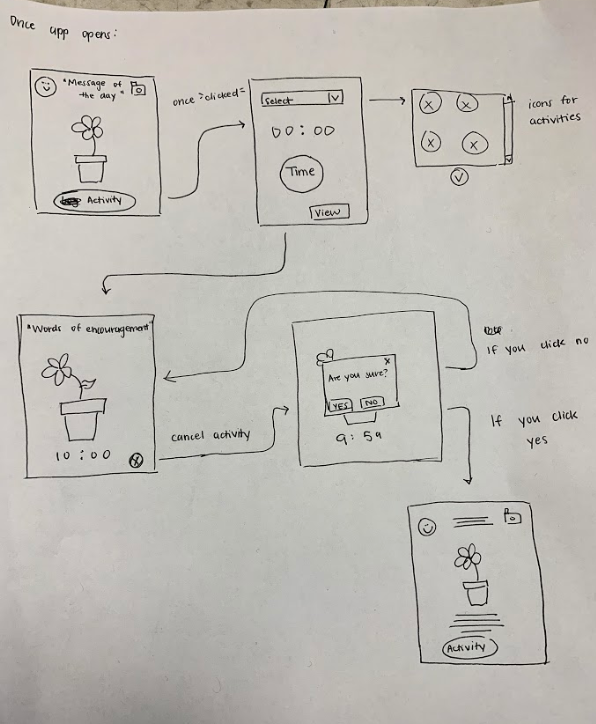 Once app opens:
"Message of
the day"
Activity
once "clicked"
Select
00:00
Time
View
icons for
activities
"Words of encouragement"
10:00
cancel activity
x
Are you sure?
YES NO
9:59
If you click no
If you click
yes
Activity